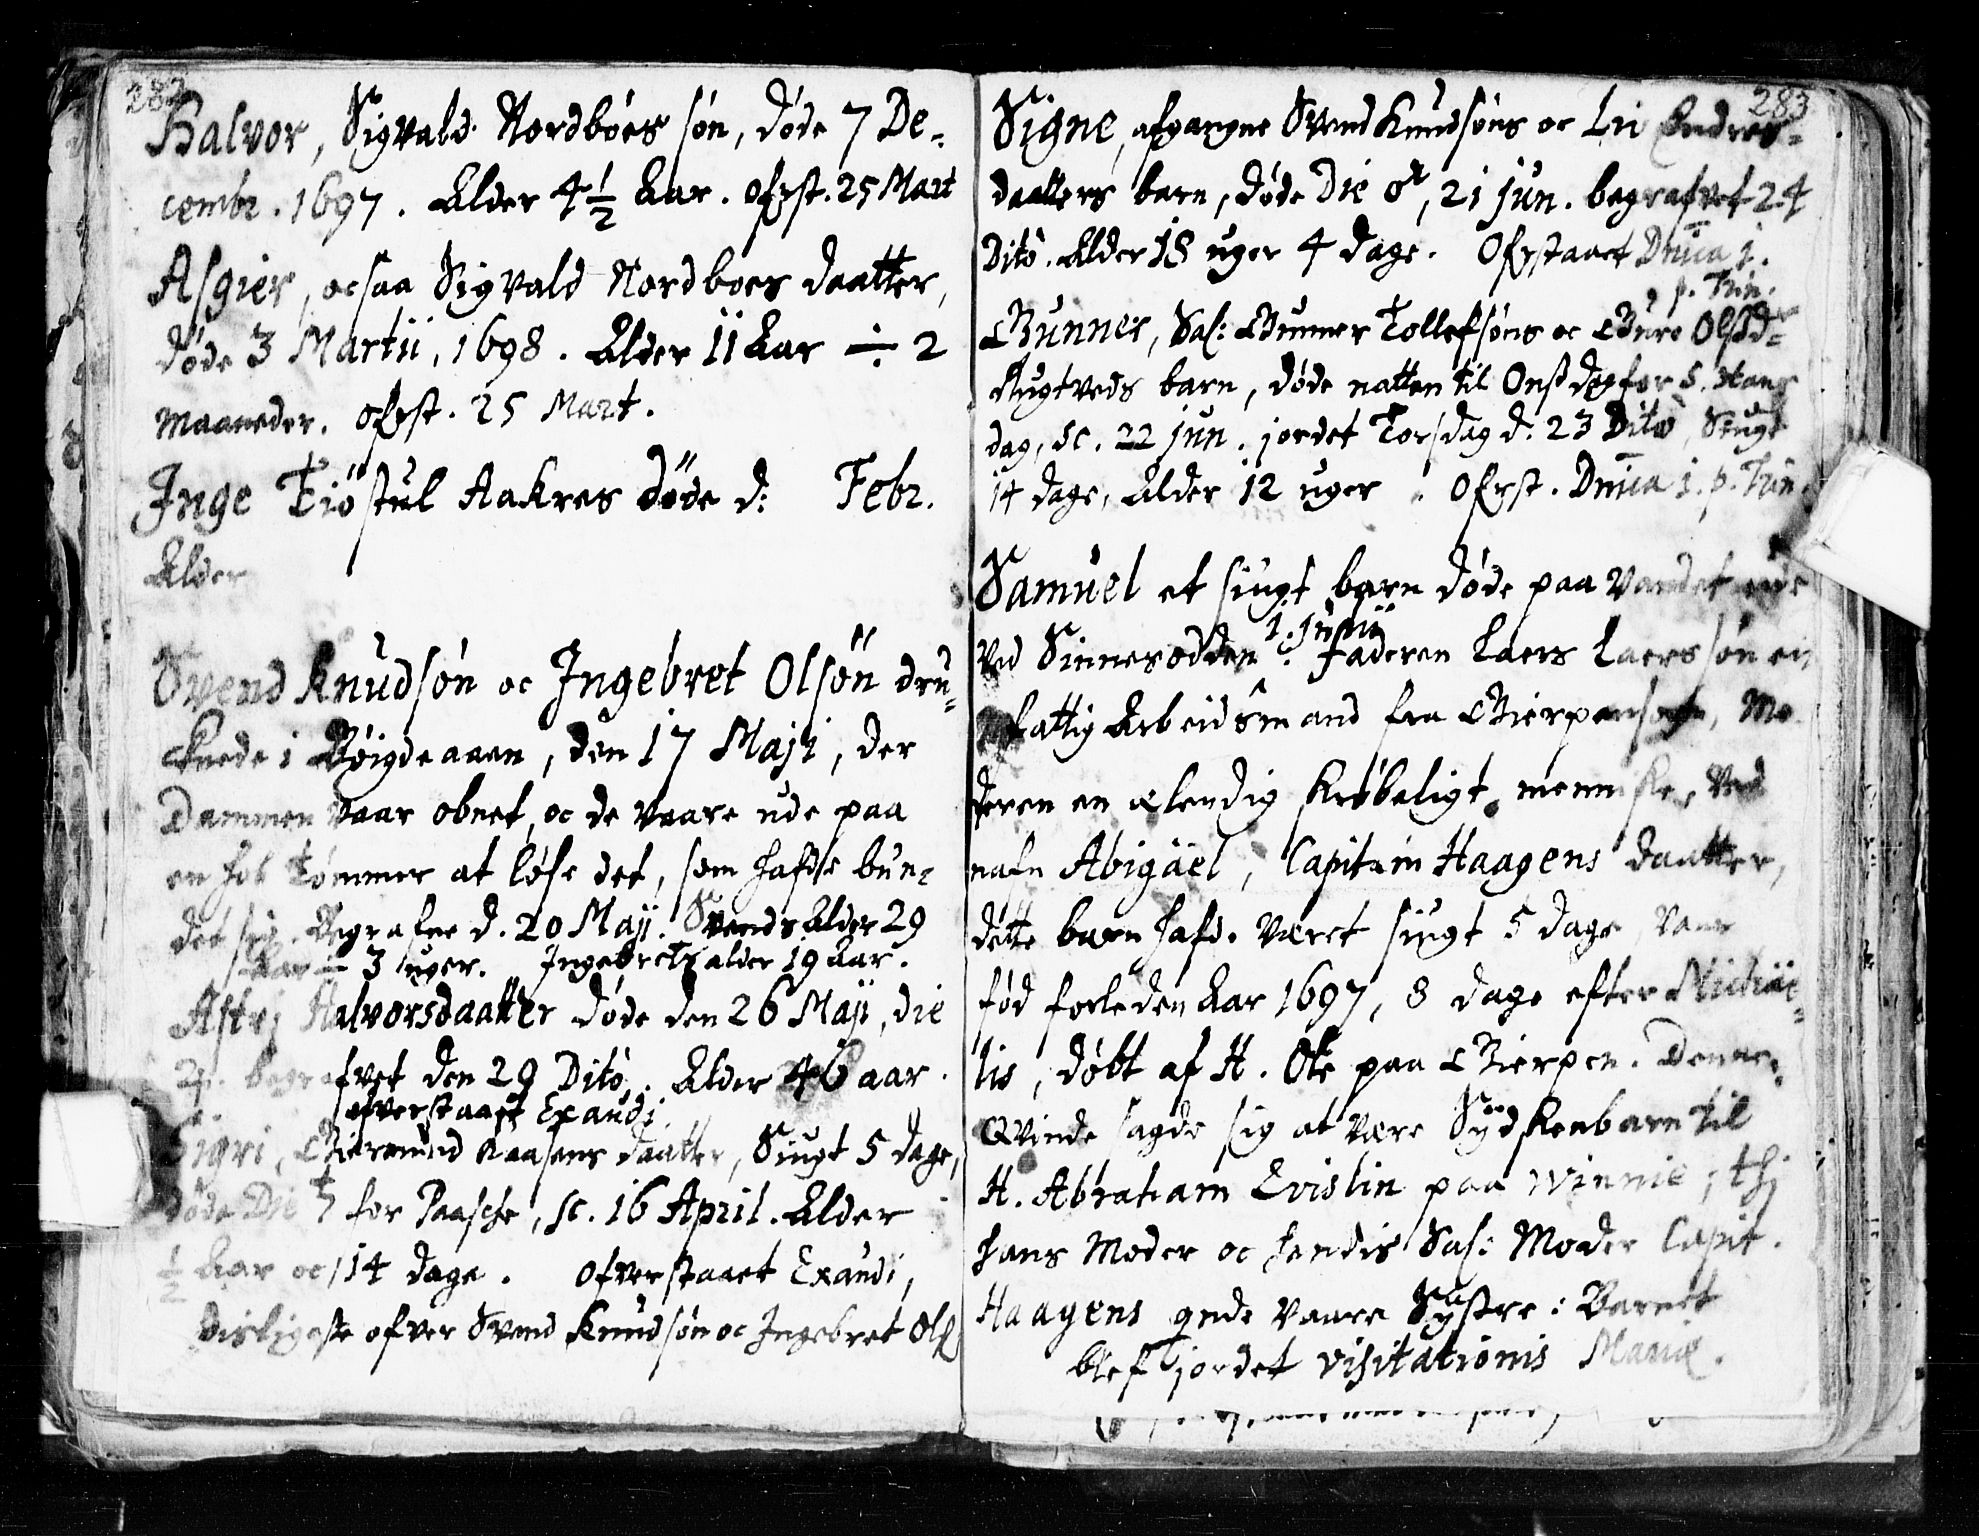 282
Halvor, Sigvald Nordböes sön, döde 7 De-
cembr. 1697. Alder 4 1/2 Aar. Ofrst. 25 Mart
Asgier, ocsaa Sigvald Nordboes daatter,
döde 3 Martii, 1698. Alder 11 Aar ÷ 2
Maaneder. Ofrst. 25 Mart.
Inge Tiöstul Aakres döde d: Febr.
Alder
Svend Knudsön oc Ingebret Olsön dru-
cknede i Böigdeaaen, den 17 Maji, der
Dammen vaar obnet, oc de vaare ude paa
en hob Tömmer at löse det, som hafde bun-
det sig. Begrafne d. 20 Maji. Svends Alder 29
Aar ÷ 3 uger. Ingebrets alder 19 Aar.
Astri Halvorsdaatter döde den 26 Maji, die
♃. begrafvet den 29 Dito. Alder 46 aar.
ofverstaaet Exaudi.
Sigri, Giermund Kaasens daatter, Siugt 5 dage,
döde Die ♄ for Paasche, sc. 16 April. Alder
1/2 Aar oc 14 dage. Ofverstaaet Exaudi,
disligeste ofver Svend Knudsön oc Ingebret Ols
283
Signe, afgangne Svend Knudsöns oc Liv Endres-
daatters barn, döde Die ♂, 21 Jun. begrafvet 24
Dito. Alder 18 uger 4 dage. Ofrstaaet Dnica 1.
p. Trin.
Gunner, Sal: Gunner Tollefsöns oc Guro Olsd-
Rugtveds barn, döde natten til Onsdag for S. Hans
dag, sc. 22 Jun. jordet Torsdag d. 23 Dito, Siugt
14 dage, Alder 12 uger. Ofrst. Dnica 1. p. Trin.
Samuel et siugt barn döde paa Vandet
1. Junii
ved Sinnesodden. Faderen Laers Laerssön en
fattig Arbeidsmand fra Gierpensogn, Mo-
deren en elendig Kröbeligt menniske, ved
nafn Abigäel, Capitain Haagens daatter,
dette barn hafd. været siugt 5 dage, vaar
föd forleden Aar 1697, 8 dage efter Michäe-
lis, döbt af H. Ole paa Gierpen. Denne
Qvinde sagde sig at være Sydskenbarn til
H. Abraham Evislin paa Winnie; thj
hans Moder oc hendis Sal: Moder Capit.
Haagens qnde vaare Systre: Barnet
blef jordet visitationis Mariæ.